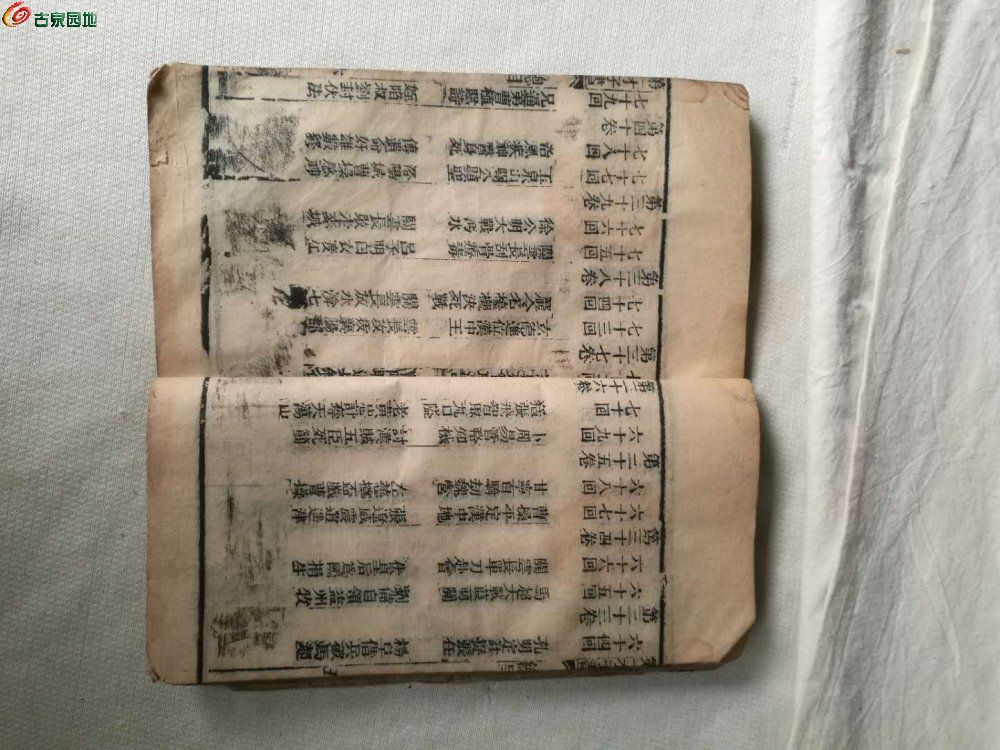 六十四回 孔明定計捉張任 楊阜借兵破馬超
第三十三卷
六十五回 馬超大戰葭萌關 劉備自領益州牧
六十六回 關雲長單刀赴會 伏皇后爲國捐生
第三十四卷
六十七回 曹操平定漢中地 張遼威震逍遙津
六十八回 甘寧百騎劫魏營 左慈擲盃戲曹操
第三十五卷
六十九回 卜周易管輅知機 討漢賊五臣死節
七十回 猛張飛智取瓦口隘 老黃忠計奪天蕩山
第三十六卷
第三十七卷
七十三回 玄德進位漢中王 雲長攻拔襄陽郡
七十四回 龐令名擡櫬決死戰 關雲長放水渰七
第三十八卷
七十五回 關雲長刮骨療毒 呂子明白衣渡江
七十六回 徐公明大戰沔水 關雲長敗走麥城
第三十九卷
七十七回 玉泉山關公顯聖 洛陽城曹操感神
七十八回 治風疾神醫身死 傳遺命奸雄數終
第四十卷
七十九回 兄逼弟曹植賦詩 姪陷叔劉封伏法
古泉园地